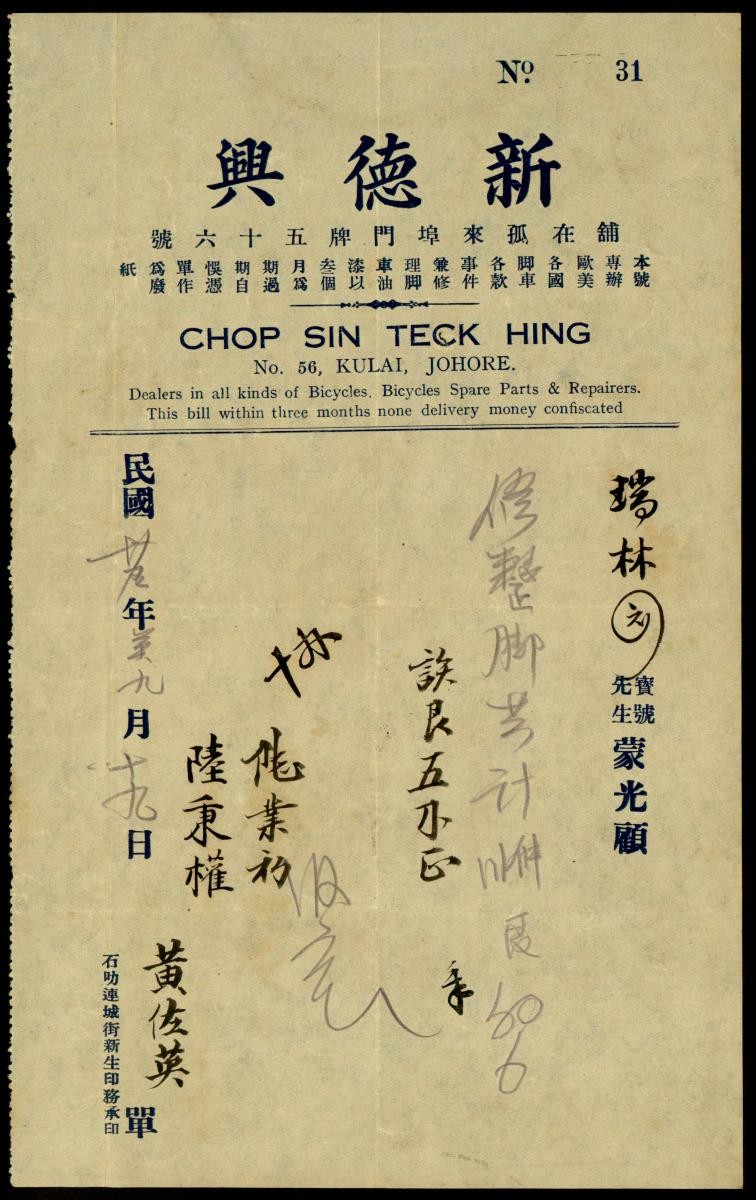 No. 31
新德興
舖在孤來埠門牌五十六號
本號專辦歐美各國脚車各款事件兼修理脚車油漆以叁個月為期過期自悞憑單作為廢紙
CHOP SIN TECK HING
No. 56, KULAI, JOHORE.
Dealers in all kinds of Bicycles. Bicycles Spare Parts & Repairers.
This bill within three months none delivery money confiscated
瑞林 寶號先生蒙光顧
修整脚共計
五 正
業初
陸秉權
民國 年 九月十九日
黃佐英 單
石叻連城街新生印務承印